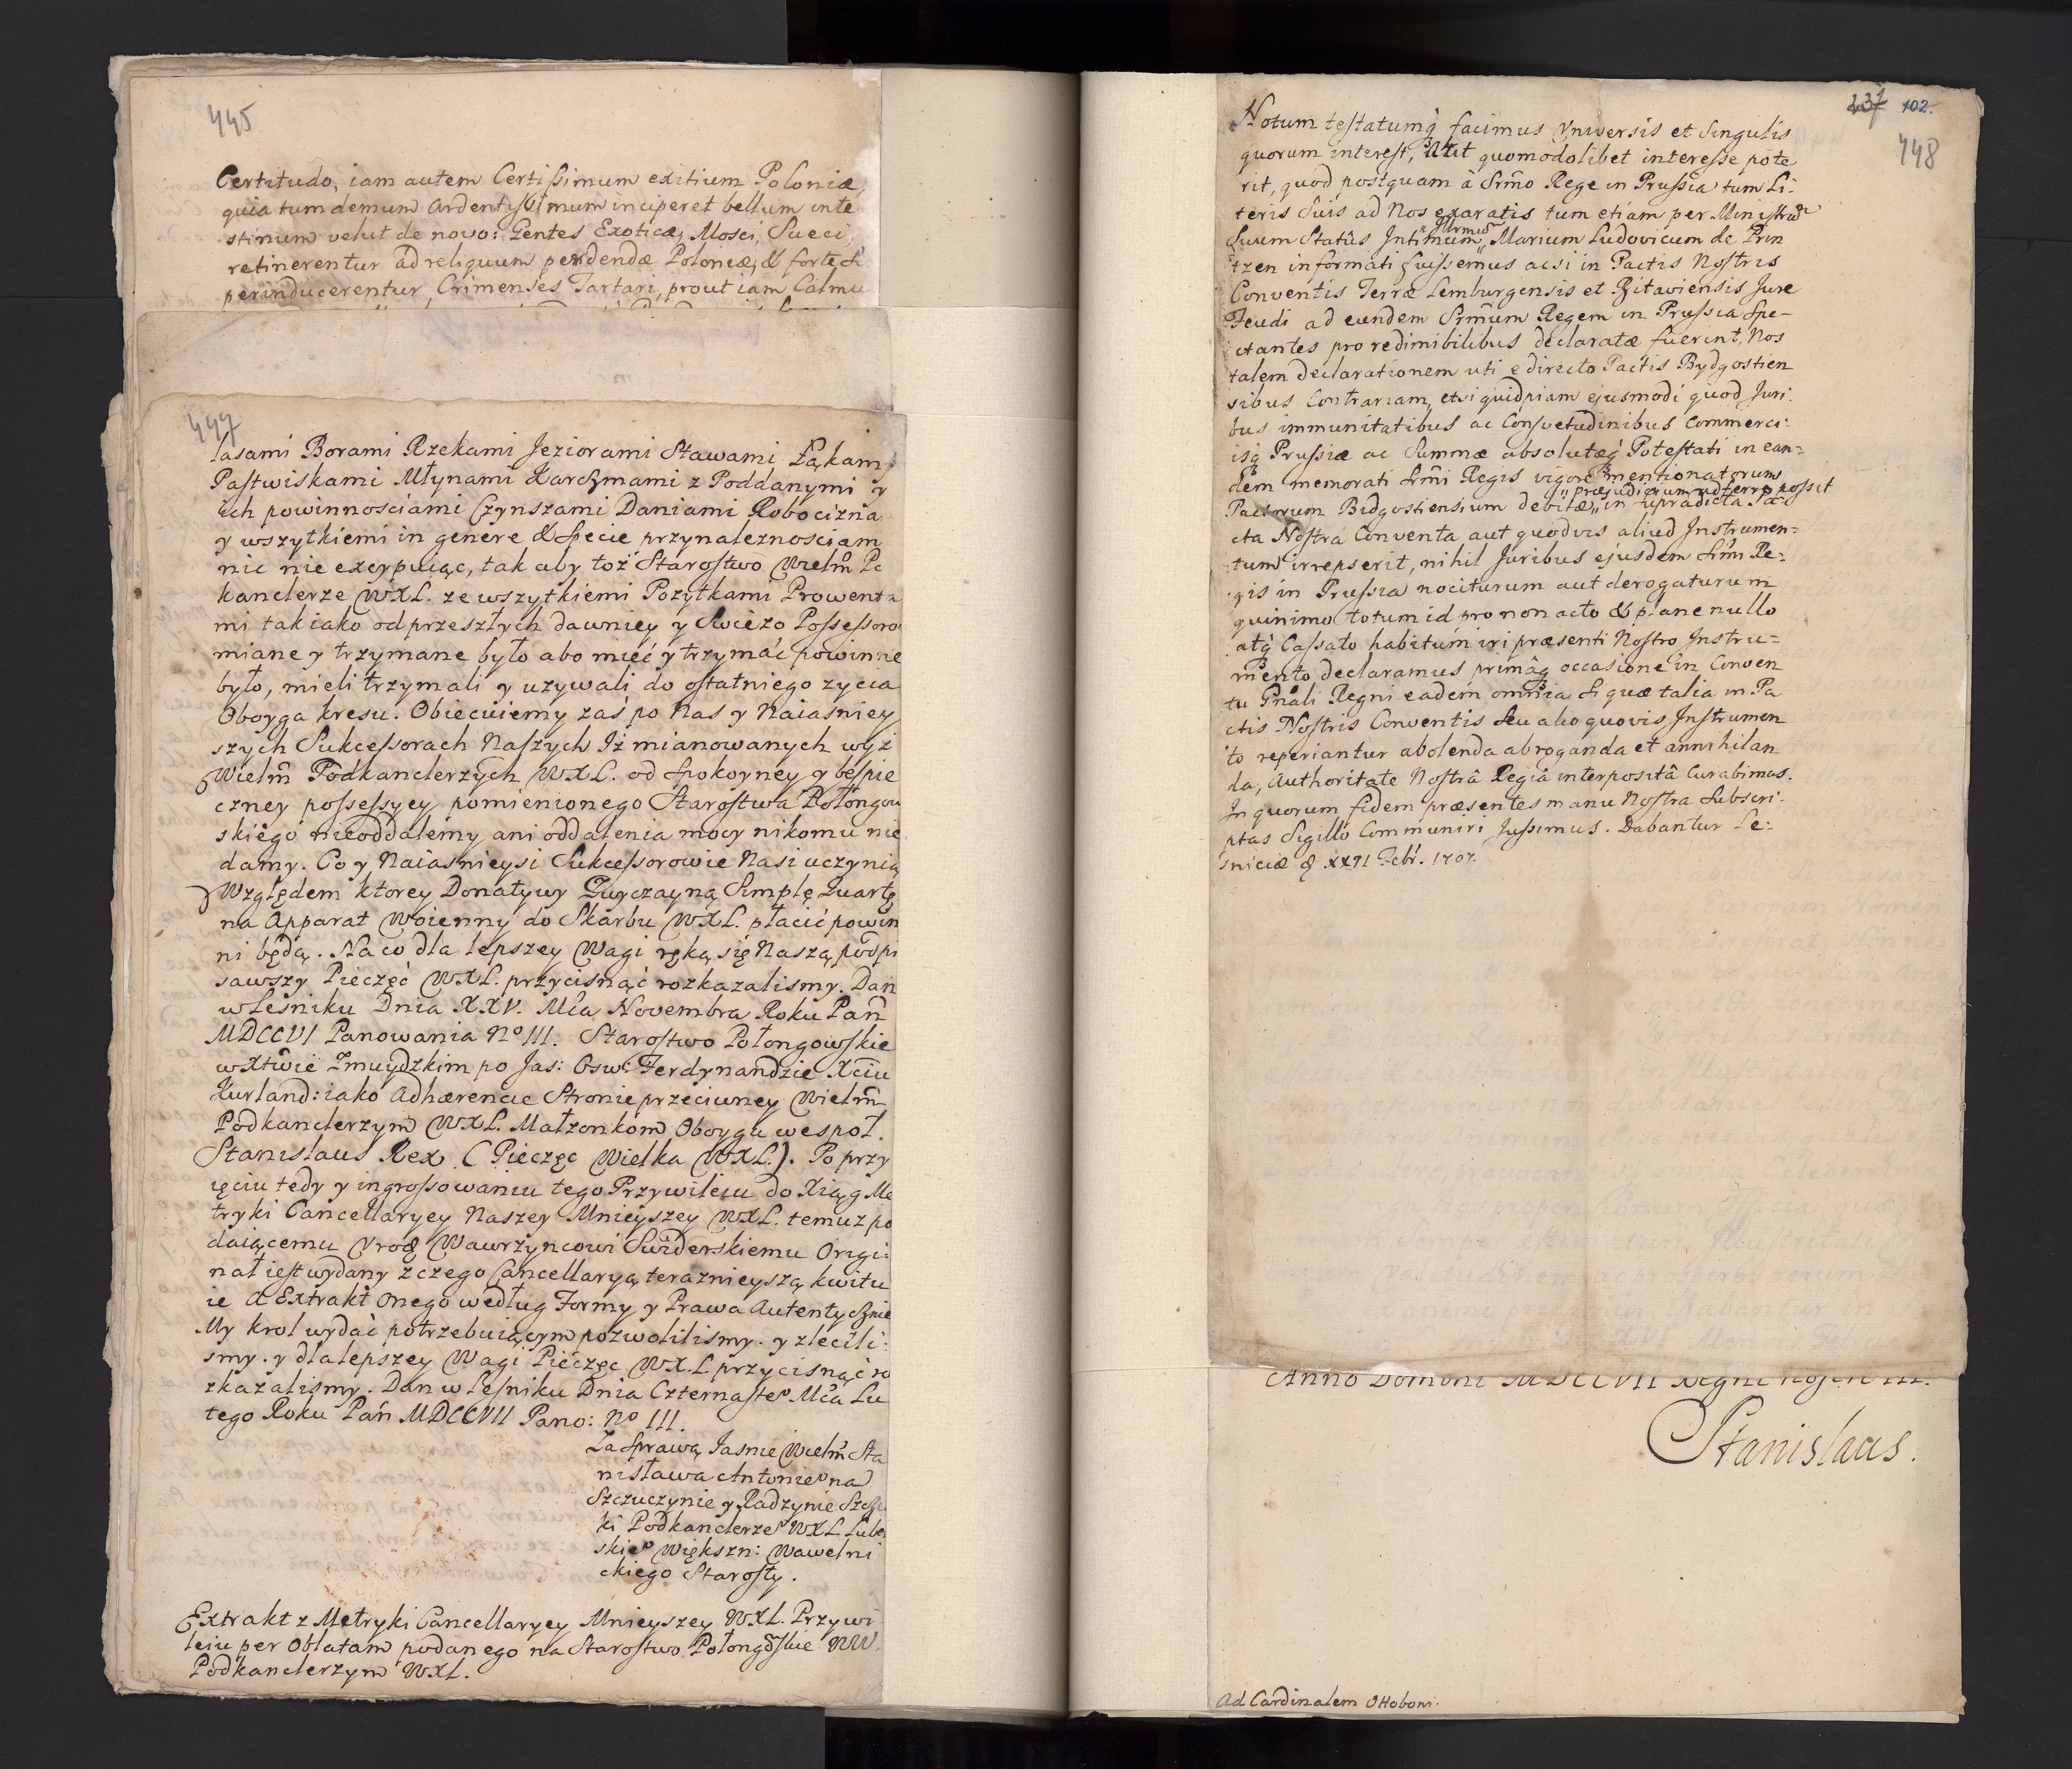 445
Certitudo, iam autem Certissimum exitium Poloniæ,
quia tum demum ardentissimum inciperet bellum inte
stinum velut de novo: Gentes Exoticæ, Mosci, Sueci,
retinerentur ad reliquum perdendæ Poloniæ, & forte &
perinducerentur, Crimenses Tartari, prout iam Calmu
447
lasami Borami Rzekami Jeziorami Stawami Łąkami
Pastwiskami Młynami Karczmami z Poddanymi y
ich powinnosciami Czynszami Daniami Robocizna
y wszytkiemi in genere & specie przynaleznosciam
nic nie excypuiąc, tak aby toż Starostwo Wielm̃ Po
kanclerze WXL. ze wszytkiemi Pozytkami Prowenta
mi tak iako od przeszłych dawniey y Swiezo Possessoro
miane y trzymane było abo mieć y trzymáć powinne
było, mieli trzymali y uzywali do ostatniego zycia
Oboyga kresu. Obiecuiemy zaś po Nas y Naiasniey
szych Sukcessorach Naszych Iż mianowanych wyż
Wielm̃ Podkanclerzych WXL. od Spokoyney y bespie
czney possessyey pomienionego Starostwa Połongow
skiego nieoddalemy ani oddalenia mocy nikomu nie
damy. Co y Naiasnieysi Sukcessorowie Nasi uczynią
Względem ktorey Donatywy Zwyczayną Simplę Quartę
na Apparat Woienny do Skarbu WXL. płacić powin
ni będą. Na co dla lepszey Wagi ręką się Naszą podpi
sawszy Pieczęć WXL. przycisnąć rozkazalismy. Dan
w Lesniku Dnia XXV. Mca Novembra Roku Pań
MDCCVI Panowania No III. Starostwo Połongowskie
w Xtwie Zmuydzkim po Jas: Osw: Ferdynandzie Xciu
Kurland: iako Adhærencie Stronie przeciwney Wielm̃
Podkanclerzym WXL. Małzonkom Oboygu wespoł.
Stanislaus Rex. (Pieczęc Wielka WXL.). Po przy
ięciu tedy y ingrossowaniu tego Przywileiu do Xiąg Me
tryki Cancellaryey Naszey Mnieyszey WXL. temuz po
daiącemu Urod Wawrzyncowi Swiderskiemu Origi-
nał iest wydany z czego Cancellaryą teraznieyszą kwitu
ie a Extrakt onego według Formy y Prawa Autentycznie
My krol wydać potrzebuiącym pozwolilismy. y zlecili-
smy. y dla lepszey Wagi Pieczęc WX.L. przycisnąć ro
zkazalismy. Dan w Lesniku Dnia Czternasteo Mca Lu
tego Roku Pań MDCCVII Pano: No III.
Za Sprawą Jasnie Wielm̃ Sta
nisława Antonieo na
Szczuczynie y Radzynie Szczu
ki Podkanclerzeo WXL. Lube
skieo Większn: Wawelni
ckiego Starosty.
Extrakt z Metryki Cancellaryey Mnieyszey WXL. Przywi
leiu per Oblatam podanego na Starostwo Połongõskie WW.
Podkanclerzym WXL.
437 102.
448
Notum testatumq̃ facimus Universis et Singulis
quorum interest, aut quomodolibet interesse pote
rit, quod postquam à Srm̃o Rege in Prussia tum Li-
teris Suis ad Nos exaratis tum etiam per Ministrũ
Suum Statûs Intimum, Marium Ludovicum de Prin
tzen informati fuissemus acsi in Pactis Nostris
Conventis Terræ Lemburgensis et Bitaviensis Jure
Feudi ad eundem Srm̃um Regem in Prussia Spe-
ctantes pro redimibilibus declaratæ fuerint, Nos
talem declarationem uti e directo Pactis Bydgostien
sibus Contrariam, etsi quidpiam ejusmodi quod Juri-
bus immunitatibus ac Consvetudinibus Commerci-
isq̃ Prussiæ ac Summæ absolutæq̃ Potestati in ean-
dem memorati Srm̃i Regis vigore mentionatorum
præjudicium adferre possit
Pactorum Bidgostiensium debitæ, in supradicta Pa-
cta Nostra Conventa aut quodvis aliud Instrumen-
tum irrepserit, nihil Juribus ejusdem Srm̃i Re-
gis in Prussia nociturum aut derogaturum
quinimo totum id pro non acto & plane nullo
atq̃ Cassato habitum iri præsenti Nostro Instru-
mento declaramus primâq̃ occasione in Conven
tu Gñali Regni eadem omnia si quæ talia in Pa
ctis Nostris Conventis seu alio quovis Instrumen
to reperiantur abolenda abroganda et annihilan
da, Authoritate Nostrâ Regiâ interpositâ Curabimus.
In quorum fidem præsentes manu Nostra Subscri-
ptas Sigillo Communiri Jussimus. Dabantur Le-
sniciæ d XXVI Febr. 1707.
Anno Domini MDCCVII Regni Nostri III.
Stanislaus.
Ad Cardinalem Ottoboni.